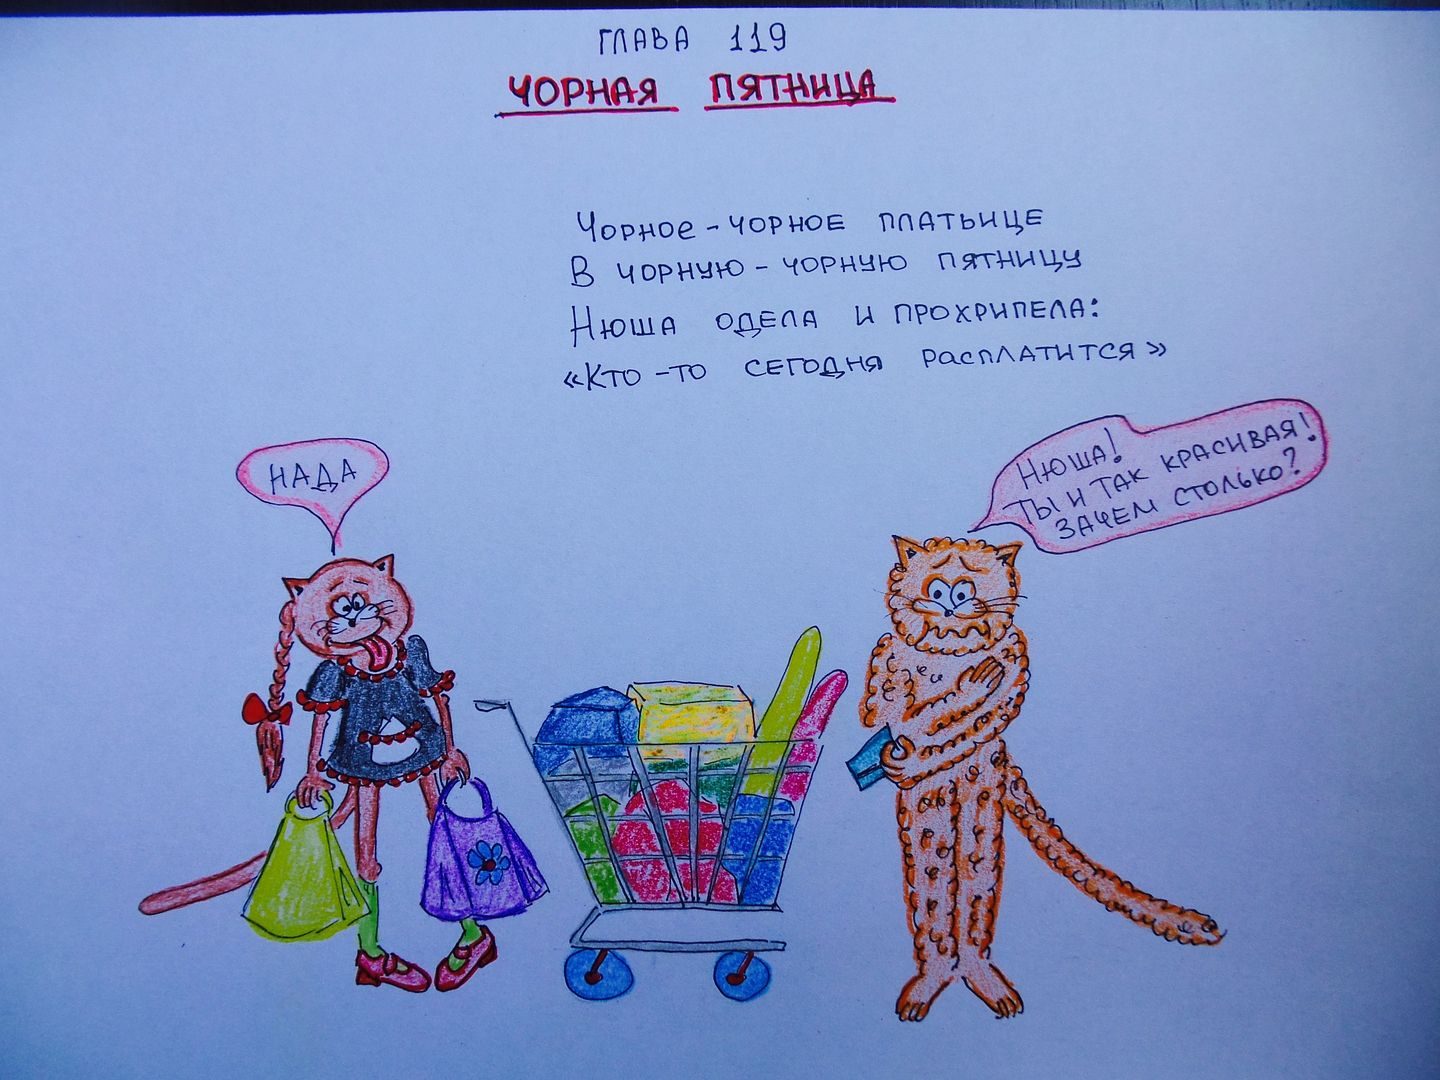 ГЛАВА 119
ЧОРНАЯ ПЯТНИЦА
Чорное-чорное платьице
В чорную-чорную пятницу
Нюша одела и прохрипела:
«Кто-то сегодня расплатится»
НАДА
Нюша!
Ты и так красивая!
Зачем столько?